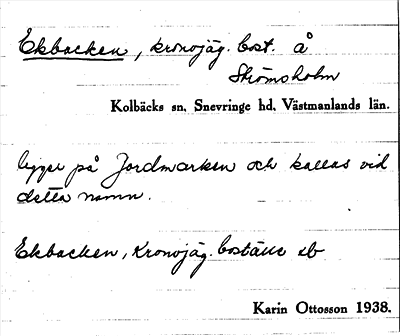 Ekbacken, kronojäg. bost. å
Strömsholm
Kolbäcks sn. Snevringe hd. Västmanlands län.
ligger på Jordmarken och kallas vid
detta namn.
Ekbacken, Kronojäg. boställe eb
Karin Ottosson 1938.